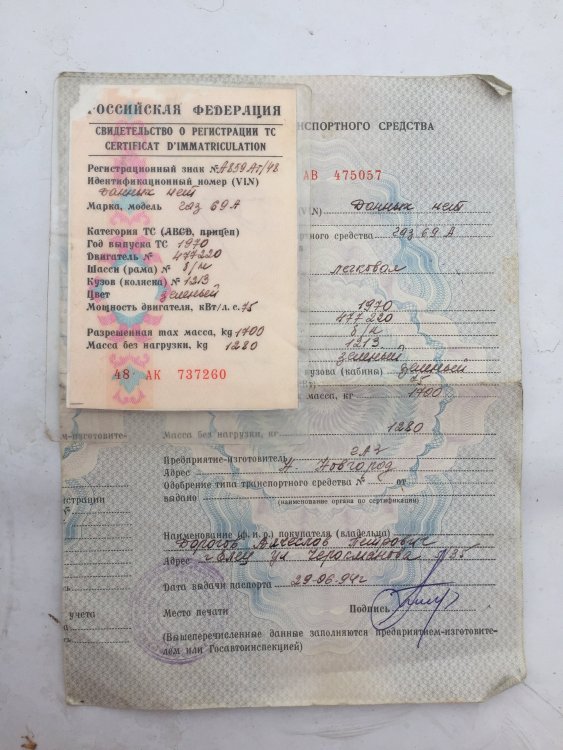 РОССИЙСКАЯ ФЕДЕРАЦИЯ
СВИДЕТЕЛЬСТВО О РЕГИСТРАЦИИ ТС
CERTIFICAT D'IMMATRICULATION
Регистрационный знак № А859АТ/48
Идентификационный номер (VIN)
Данных нет
Марка, модель ГАЗ 69А
Категория ТС (ABCD, прицеп)
Год выпуска ТС 1970
Двигатель № 477220
Шасси (рама) № б/н
Кузов (коляска) № 1213
Цвет зеленый
Мощность двигателя, кВт/л. с. 75
Разрешенная max масса, kg 1700
Масса без нагрузки, kg 1280
48 АК 737260
НСПОРТНОГО СРЕДСТВА
АВ 475057
VIN) Данных нет
ортного средства ГАЗ 69А
легковая
1970
477220
б/н
1213
зеленый
кузова (кабины) зеленый
75
масса, кг 1700
Масса без нагрузки, кг 1280
Предприятие-изготовитель ГАЗ
Адрес Н Новгород
Одобрение типа транспортного средства № от
выдано
(наименование органа по сертификации)
Наименование (ф. и. о.) покупателя (владельца)
Вячеслав Петрович
Адрес г Елец ул
Дата выдачи паспорта 29.06.94г
Место печати Подпись
(Вышеперечисленные данные заполняются предприятием-изготовите-
лем или Госавтоинспекцией)